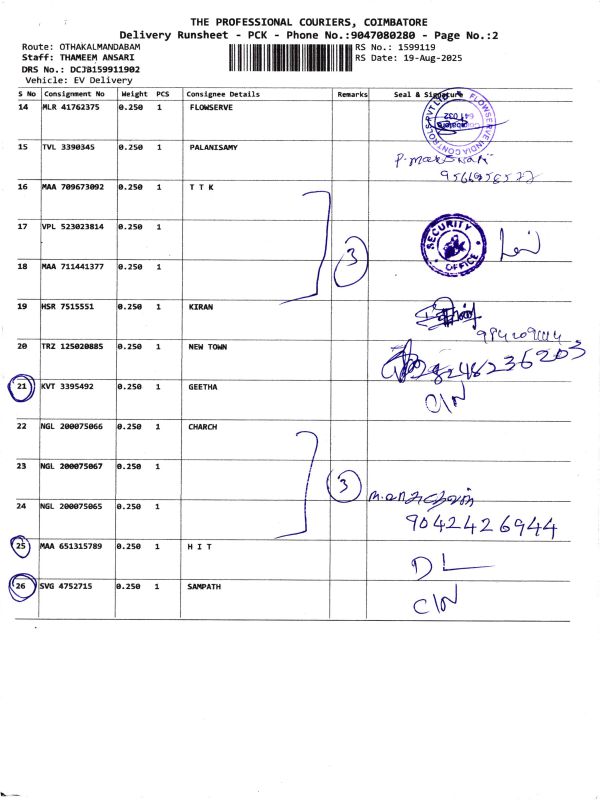 THE PROFESSIONAL COURIERS, COIMBATORE
Delivery Runsheet - PCK - Phone No.:9047080280 - Page No.:2
Route: OTHAKALMANDABAM
RS No.: 1599119
Staff: THAMEEM ANSARI
RS Date: 19-Aug-2025
DRS No.: DCJB159911902
Vehicle: EV Delivery
S No Consignment No Weight PCS Consignee Details Remarks Seal & Signature
14 MLR 41762375 0.250 1 FLOWSERVE
FLOWSERVE INDIA CONTROLS PVT LTD
641 032
15 TVL 3390345 0.250 1 PALANISAMY
16 MAA 709673092 0.250 1 T T K
17 VPL 523023814 0.250 1
3
SECURITY
OFFICE
18 MAA 711441377 0.250 1
19 HSR 7515551 0.250 1 KIRAN
20 TRZ 125020885 0.250 1 NEW TOWN
21 KVT 3395492 0.250 1 GEETHA
C/N
22 NGL 200075066 0.250 1 CHARCH
23 NGL 200075067 0.250 1
3
24 NGL 200075065 0.250 1
9042426944
25 MAA 651315789 0.250 1 H I T
DL
26 SVG 4752715 0.250 1 SAMPATH
C/N